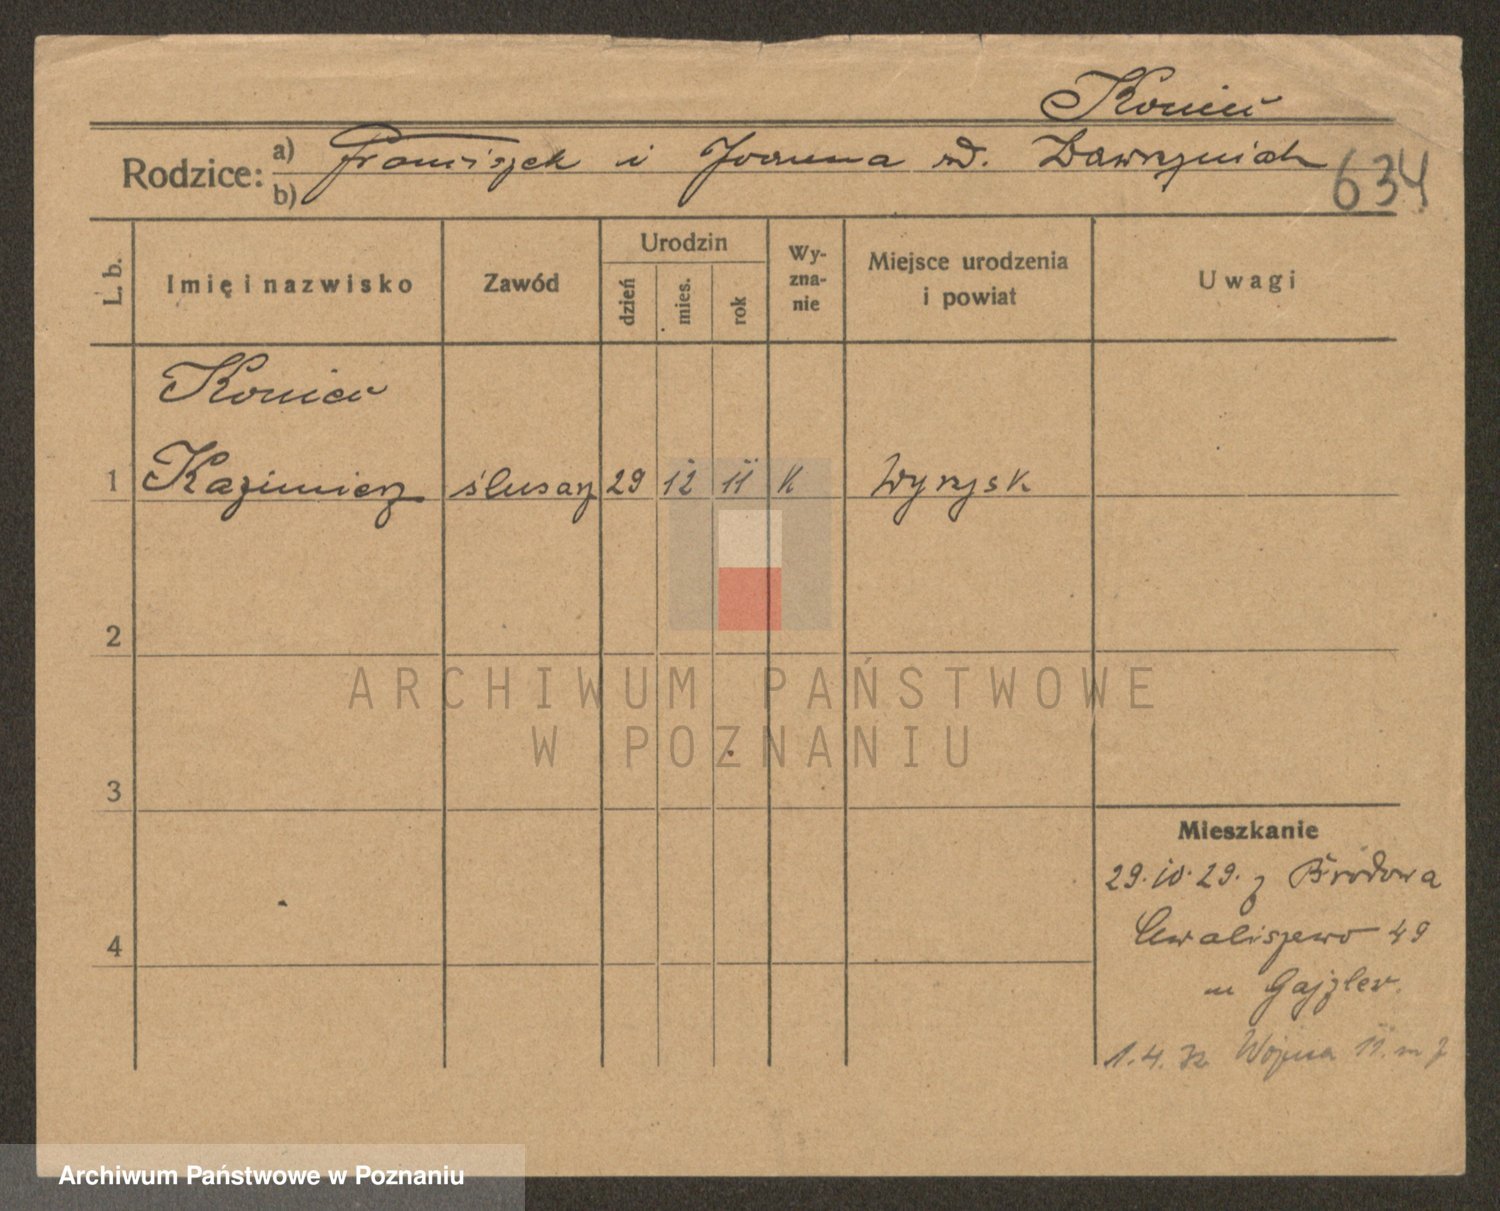 Konieć
Rodzice: a) Franciszek i Joanna
b)
634
L. b.
Imię i nazwisko
Zawód
Urodzin
dzień
mies.
rok
Wy-
zna-
nie
Miejsce urodzenia
i powiat
Uwagi
Konieć
1 Kazimierz ślusarz 29 12 11 K Wyrzysk
2
3
4
ARCHIWUM PAŃSTWOWE
W POZNANIU
Mieszkanie
29.10.29. z Brodowa
Chwaliszewo 49
m Gajzler.
1.4.32 Wojna 11. m
Archiwum Państwowe w Poznaniu